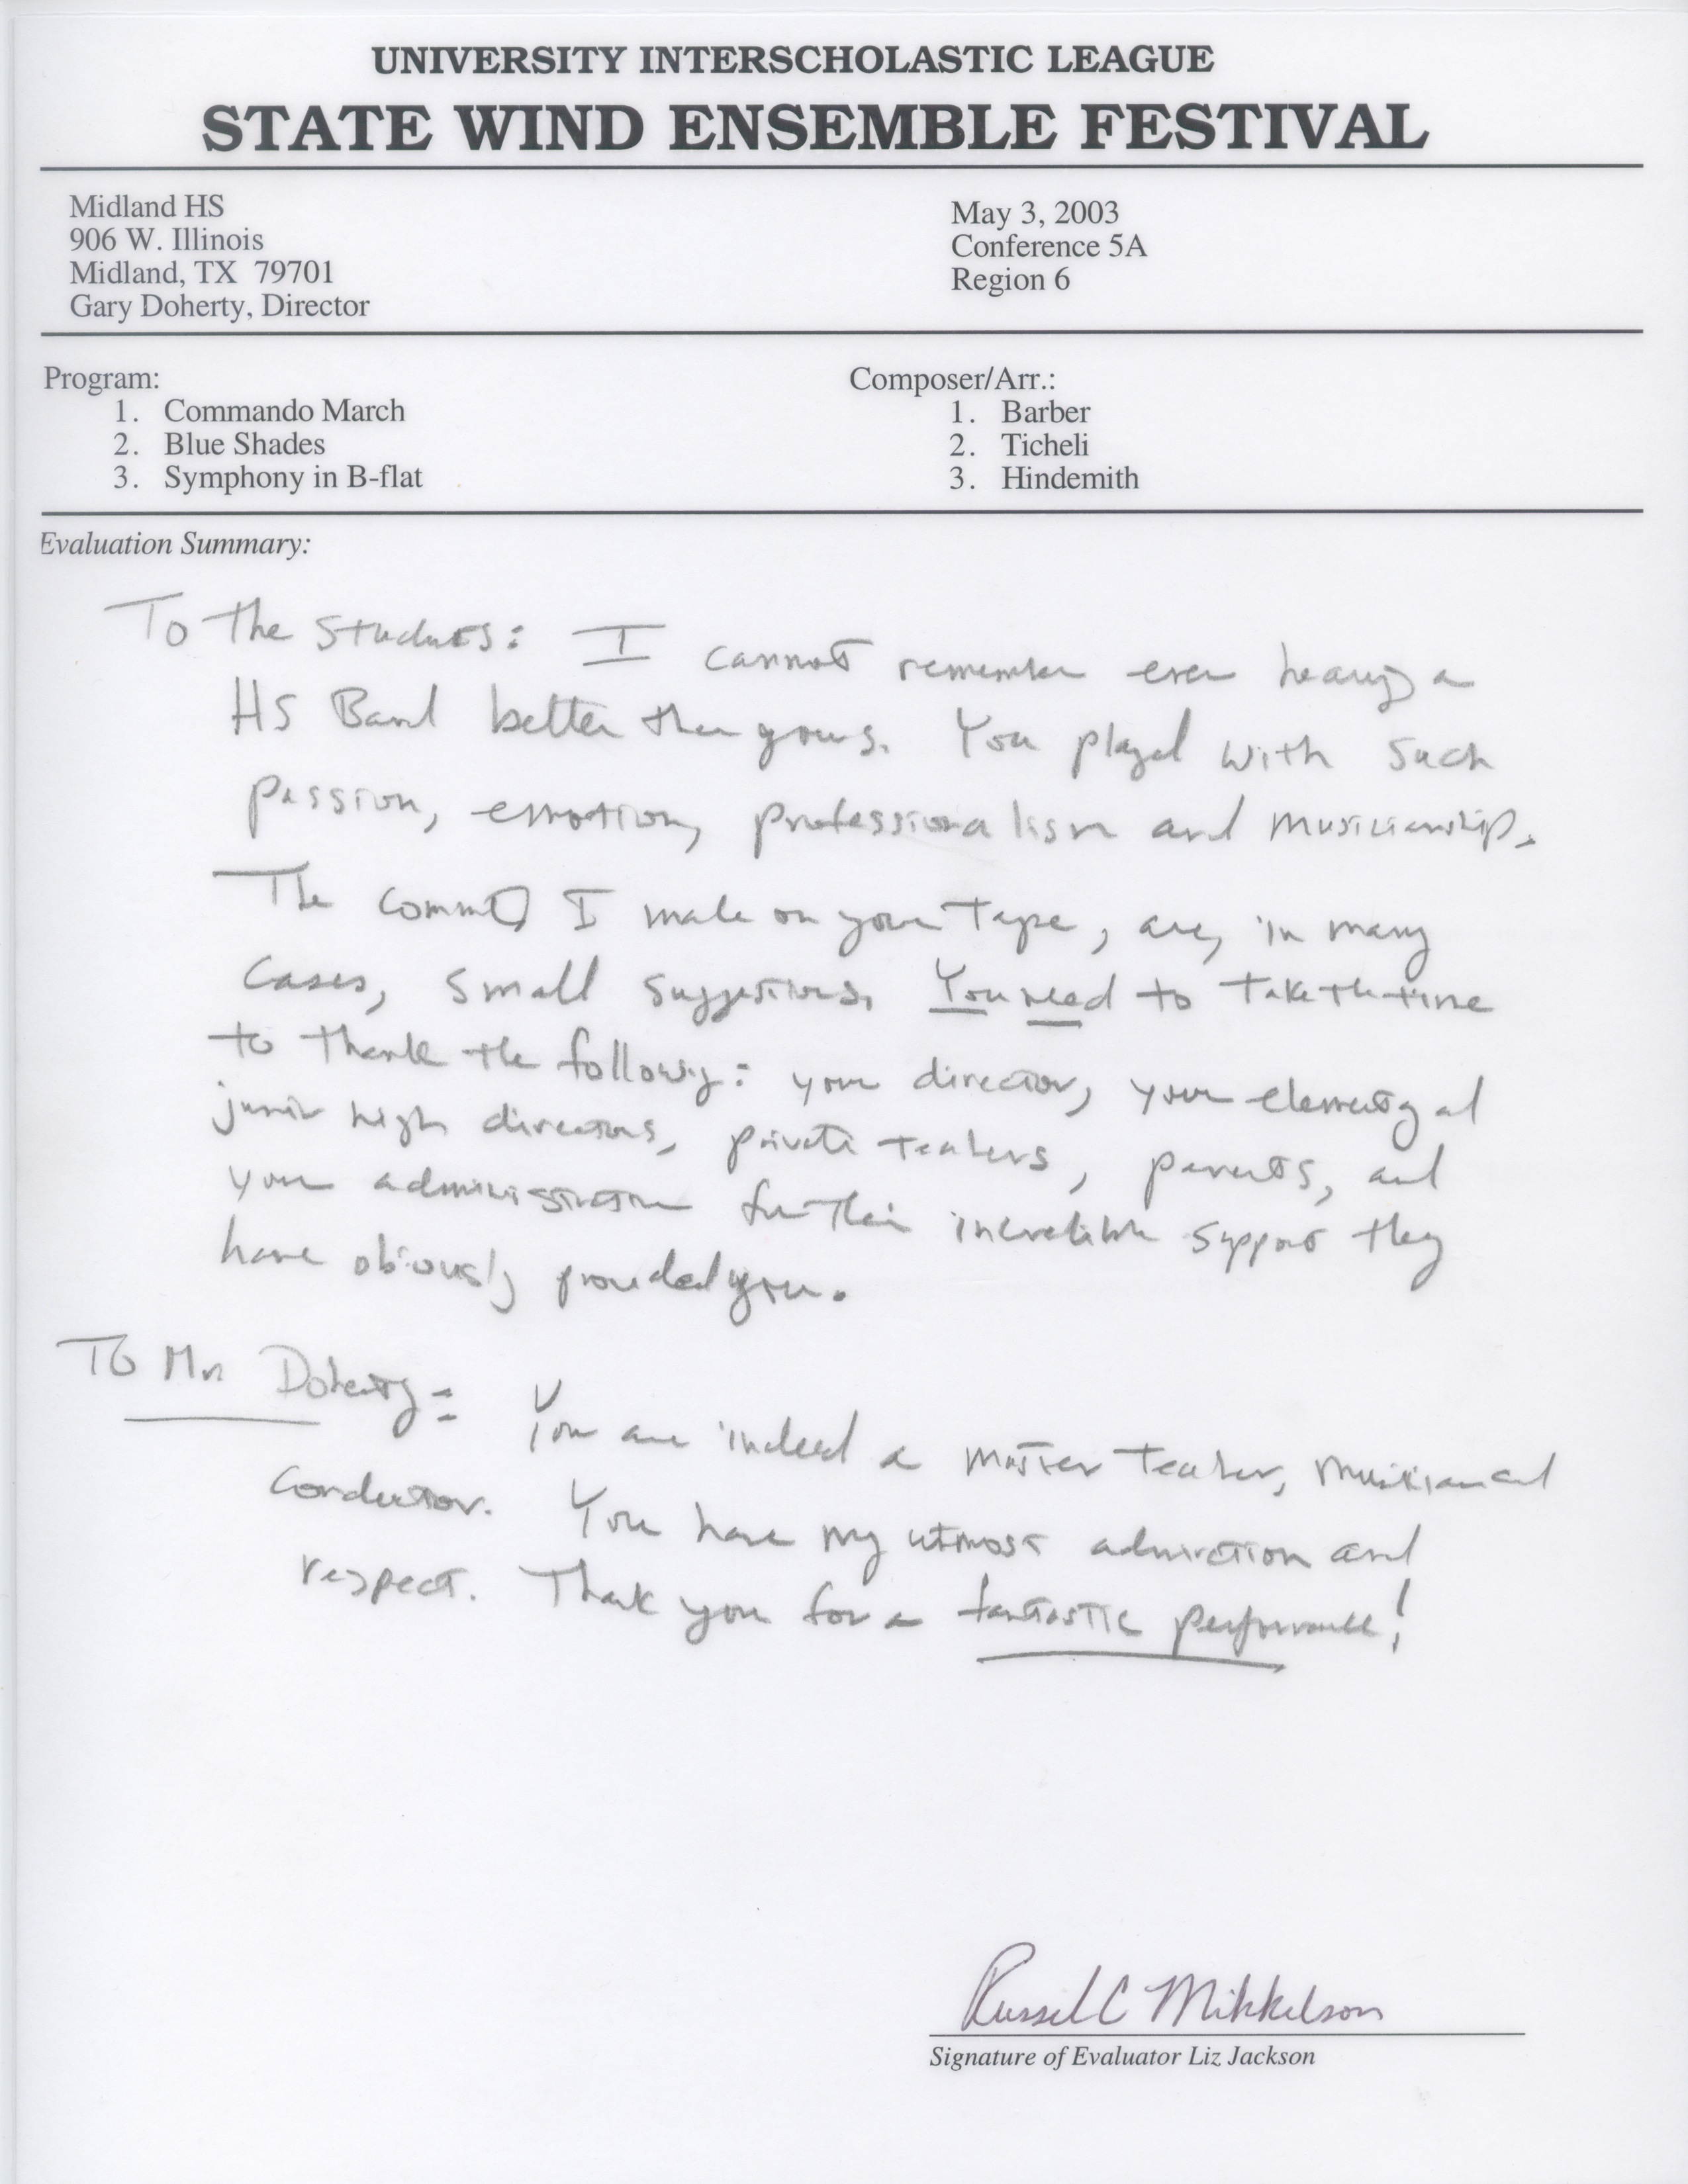 UNIVERSITY INTERSCHOLASTIC LEAGUE
STATE WIND ENSEMBLE FESTIVAL
Midland HS
906 W. Illinois
Midland, TX 79701
Gary Doherty, Director
May 3, 2003
Conference 5A
Region 6
Program:
1. Commando March
2. Blue Shades
3. Symphony in B-flat
Composer/Arr.:
1. Barber
2. Ticheli
3. Hindemith
Evaluation Summary:
To the Students: I cannot remember ever hearing a
HS Band better than yours. You played with such
passion, emotion, professionalism and musicianship.
The comments I made on your tape, are, in many
cases, small suggestions. You need to take the time
to thank the following: your director, your elementary and
junior high directors, private teachers, parents, and
your administration for their incredible support they
have obviously provided you.
To Mr. Doherty: You are indeed a master teacher, musician and
conductor. You have my utmost admiration and
respect. Thank you for a fantastic performance!
Russel C Mikkelson
Signature of Evaluator Liz Jackson